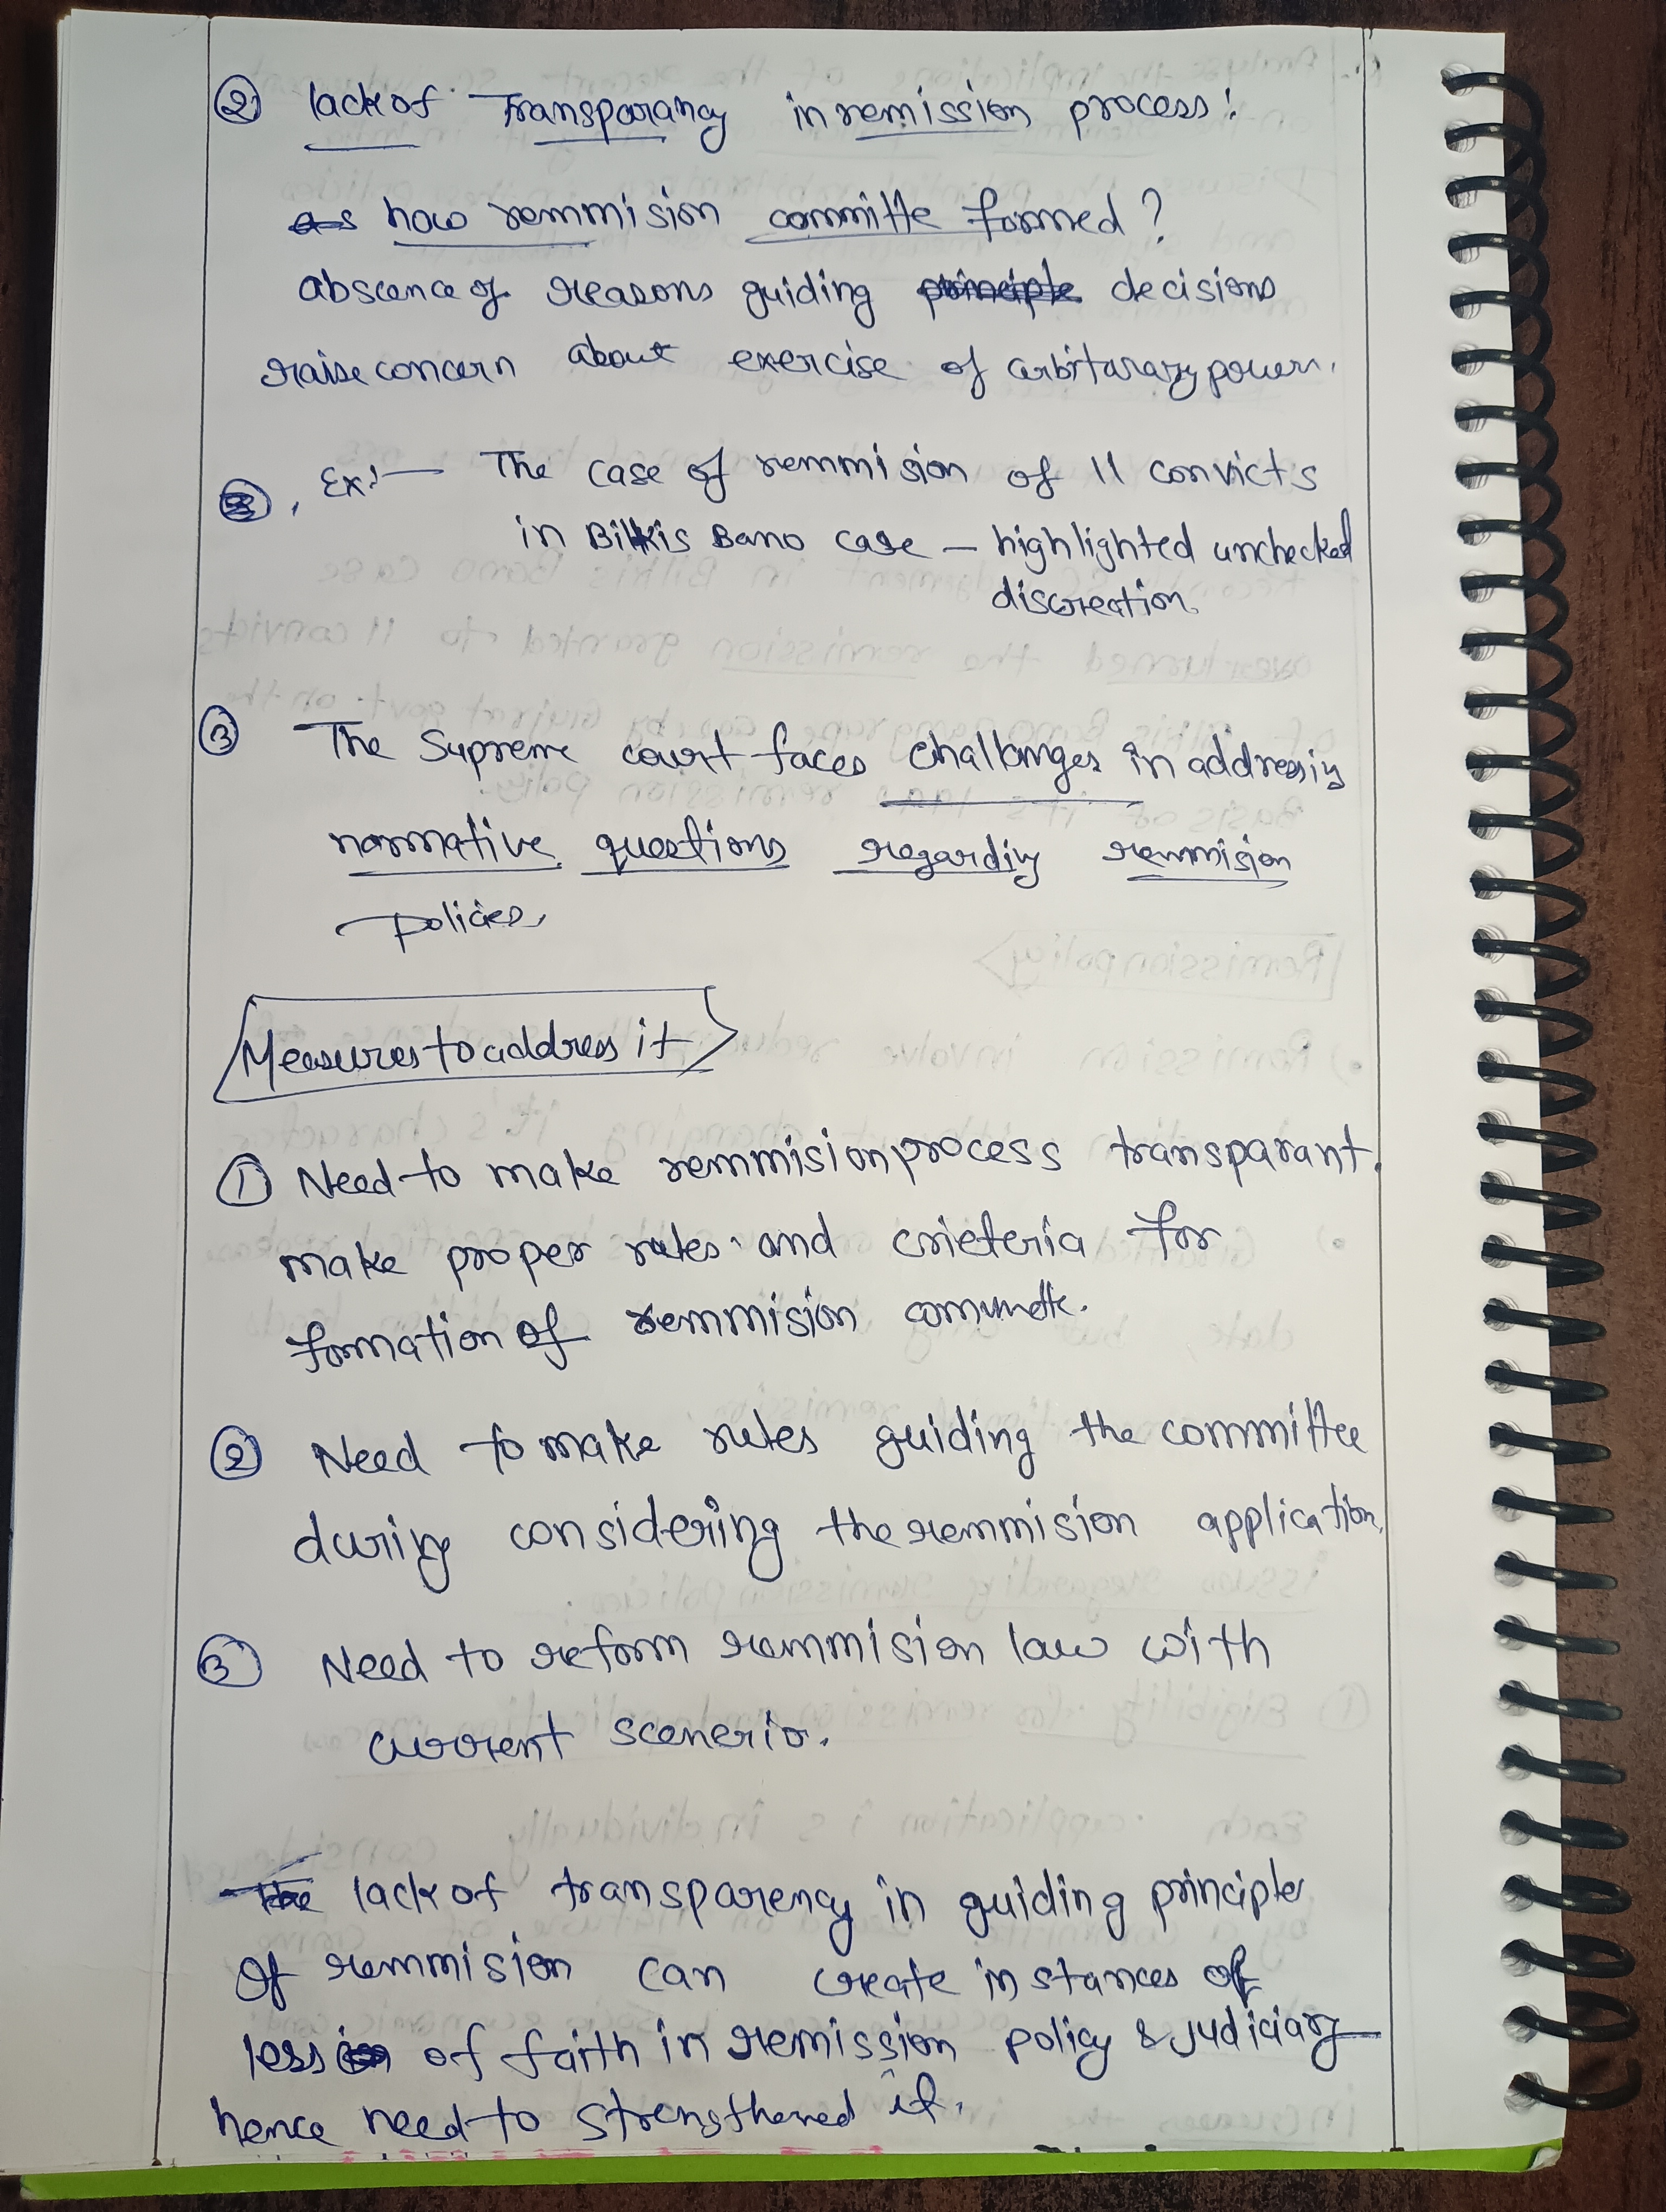 ② lack of Transparancy in remission process:
how remmision committe formed?
abscence of reasons guiding decisions
raise concern about exercise of arbitarary power.
Ex:- The case of remmision of 11 convicts
in Bilkis Bano case - highlighted unchecked
discreation.
③ The Supreme court faces challenges in addressing
normative questions regarding remmision
policies,
Measures to address it
① Need to make remmision process transparant.
make proper rules and crieteria for
formation of remmision
② Need to make rules guiding the committee
during considering the remmision application.
③ Need to reform remmision law with
current scenerio.
lack of transparency in guiding principles
of remmision can create instances of
less of faith in remission policy & judiciary
hence need to strengthened it.